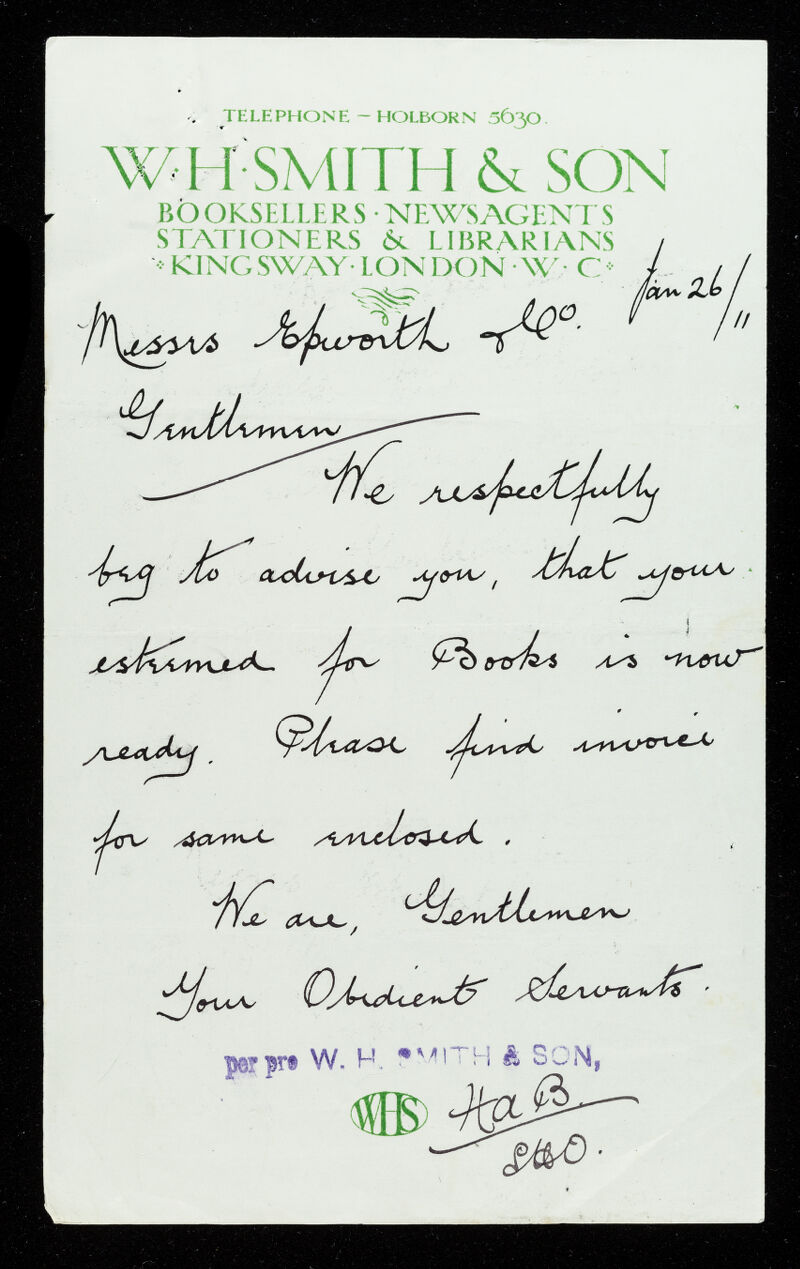 TELEPHONE – HOLBORN 5630.
W·H·SMITH & SON
BOOKSELLERS · NEWSAGENTS
STATIONERS & LIBRARIANS
KINGSWAY · LONDON · W · C
Jan 26/11
Messrs Epworth & Co.
Gentlemen
We respectfully
beg to advise you, that your
esteemed for Books is now
ready. Please find invoice
for same enclosed.
We are, Gentlemen
Your Obedient Servants.
per pro W. H. SMITH & SON,
WHS
HaB.